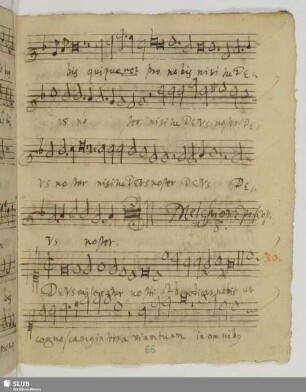 bis qui pugnet pro nobis nisi tu DE-
VS no ster nisi tu DEVS noster DE-
VS noster nisi tu DEVS noster DEVS DE-
VS noster.
30.
DEVS misereatur nostri et benedicat nobis ut
cognoscamus in terra viam tuam in omnibus
66
SLUB